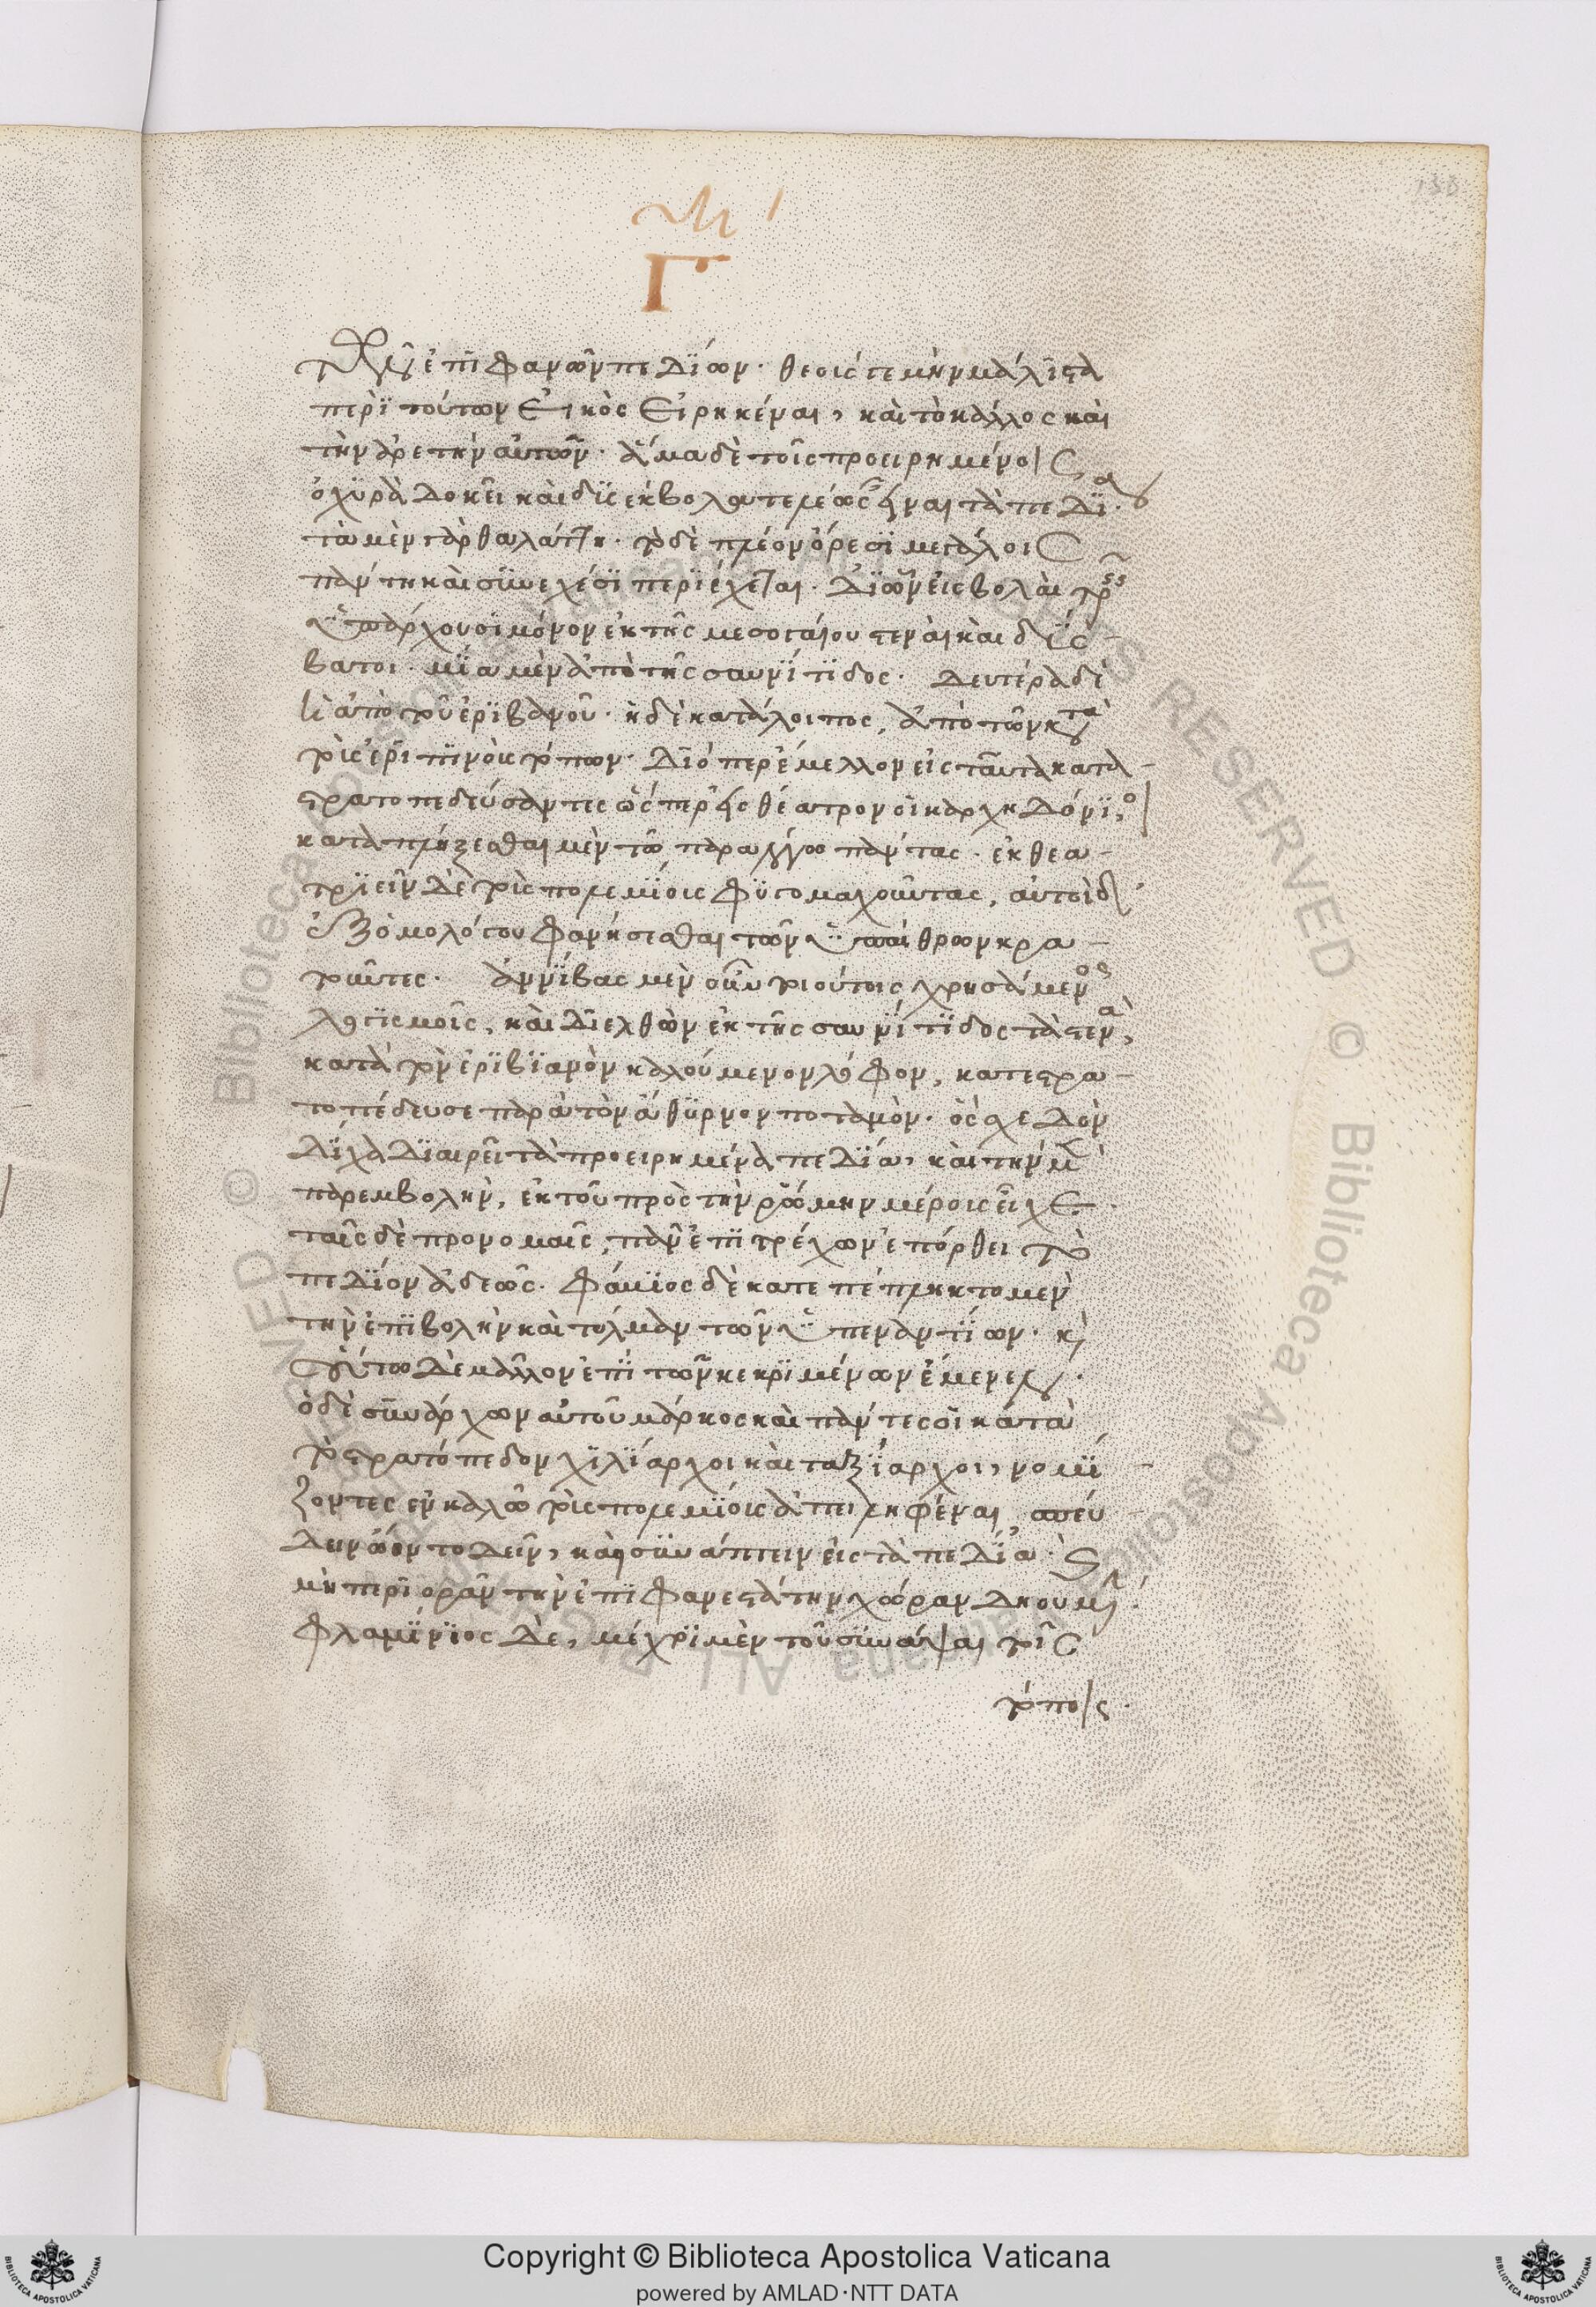 γ´
Γ
τῶν ἐπιφανῶν πεδίων· θεοίς γε μὴν μάλιστα
περὶ τούτων εἰκὸς εἰρηκέναι, καὶ τὸ κάλλος καὶ
τὴν ἀρετὴν αὐτῶν· ἅμα δὲ τοῖς προειρημένοις
ὀχυρὰ δοκεῖ καὶ δυσέκβολα τελέως εἶναι τὰ πεδία·
τὰ μὲν γὰρ θαλάττη· τὸ δὲ πλέον ὄρεσι μεγάλοις
πάντη καὶ συνεχέσι περιέχεται· δι ὧν εἰσβολαὶ τρεῖς
ὑπάρχουσι μόνον ἐκ τῆς μεσογαίου στεναὶ καὶ δύσ-
βατοι· μία μὲν ἀπὸ τῆς σαυνίτιδος· δευτέρα δὲ
ἡ ἀπὸ τοῦ ἐριβανοῦ· ἡ δὲ κατάλοιπος, ἀπὸ τῶν κατὰ
τοὺς τόπων· διόπερ ἔμελλον εἰς ταῦτα κατα-
στρατοπεδεύσαντες ὥσπερ εἰς θέατρον οἱ καρχηδόνιοι
καταπλήξεσθαι μὲν τῶ παραλόγω πάντας· ἐκθεα-
τριεῖν δὲ τοὺς πολεμίους φυγομαχοῦντας, αὐτοὶ δ'
ἐξ ὁμολόγου φανήσεσθαι τῶν ὑπαίθρων κρα-
τοῦντες· ἀννίβας μὲν οὖν τοιούτοις χρησάμενος
λογισμοῖς, καὶ διελθὼν ἐκ τῆς σαυνίτιδος τὰ στενὰ,
κατὰ τὸν ἐριβιανὸν καλούμενον λόφον, κατεστρα-
τοπέδευσε παρὰ τὸν ἄθυρνον ποταμὸν· ὃς σχεδὸν
δίχα διαιρεῖ τὰ προειρημένα πεδία, καὶ τὴν μὲν
παρεμβολὴν, ἐκ τοῦ πρὸς τὴν ῥώμην μέρους εἶχε·
ταῖς δὲ προνομαῖς, πᾶν ἐπιτρέχων ἐπόρθει τὸ
πεδίον ἀδεῶς· φάμιος δὲ κατεπέπληκτο μὲν
τὴν ἐπιβολὴν καὶ τόλμαν τῶν ὑπεναντίων· καὶ
τοσούτω δὲ μᾶλλον ἐπὶ τῶν κεκριμένων ἔμενεν·
ὁ δὲ συνάρχων αὐτοῦ μάρκος καὶ πάντες οἱ κατὰ
τὸ στρατόπεδον χιλίαρχοι καὶ ταξίαρχοι, νομί-
ζοντες ἐν καλῶ τοὺς πολεμίους ἀπειληφέναι, σπεύ-
δειν ὤοντο δεῖν, καὶ συνάπτειν εἰς τὰ πεδία· καὶ
μὴ περιορᾶν τὴν ἐπιφανεστάτην χώραν δηουμένην·
φλαμίνιος δὲ, μέχρι μὲν τοῦ συνάψαι τοῖς
τόποις·
Copyright © Biblioteca Apostolica Vaticana
powered by AMLAD·NTT DATA